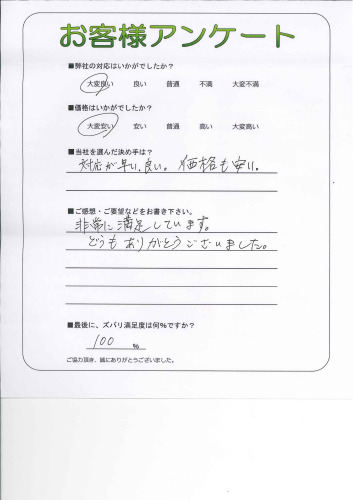 お客様アンケート
■弊社の対応はいかがでしたか?
大変良い 良い 普通 不満 大変不満
■価格はいかがでしたか?
大変安い 安い 普通 高い 大変高い
■当社を選んだ決め手は?
対応が早い、良い。価格も安い。
■ご感想・ご要望などをお書き下さい。
非常に満足しています。
どうもありがとうございました。
■最後に、ズバリ満足度は何%ですか?
100 %
ご協力頂き、誠にありがとうございました。